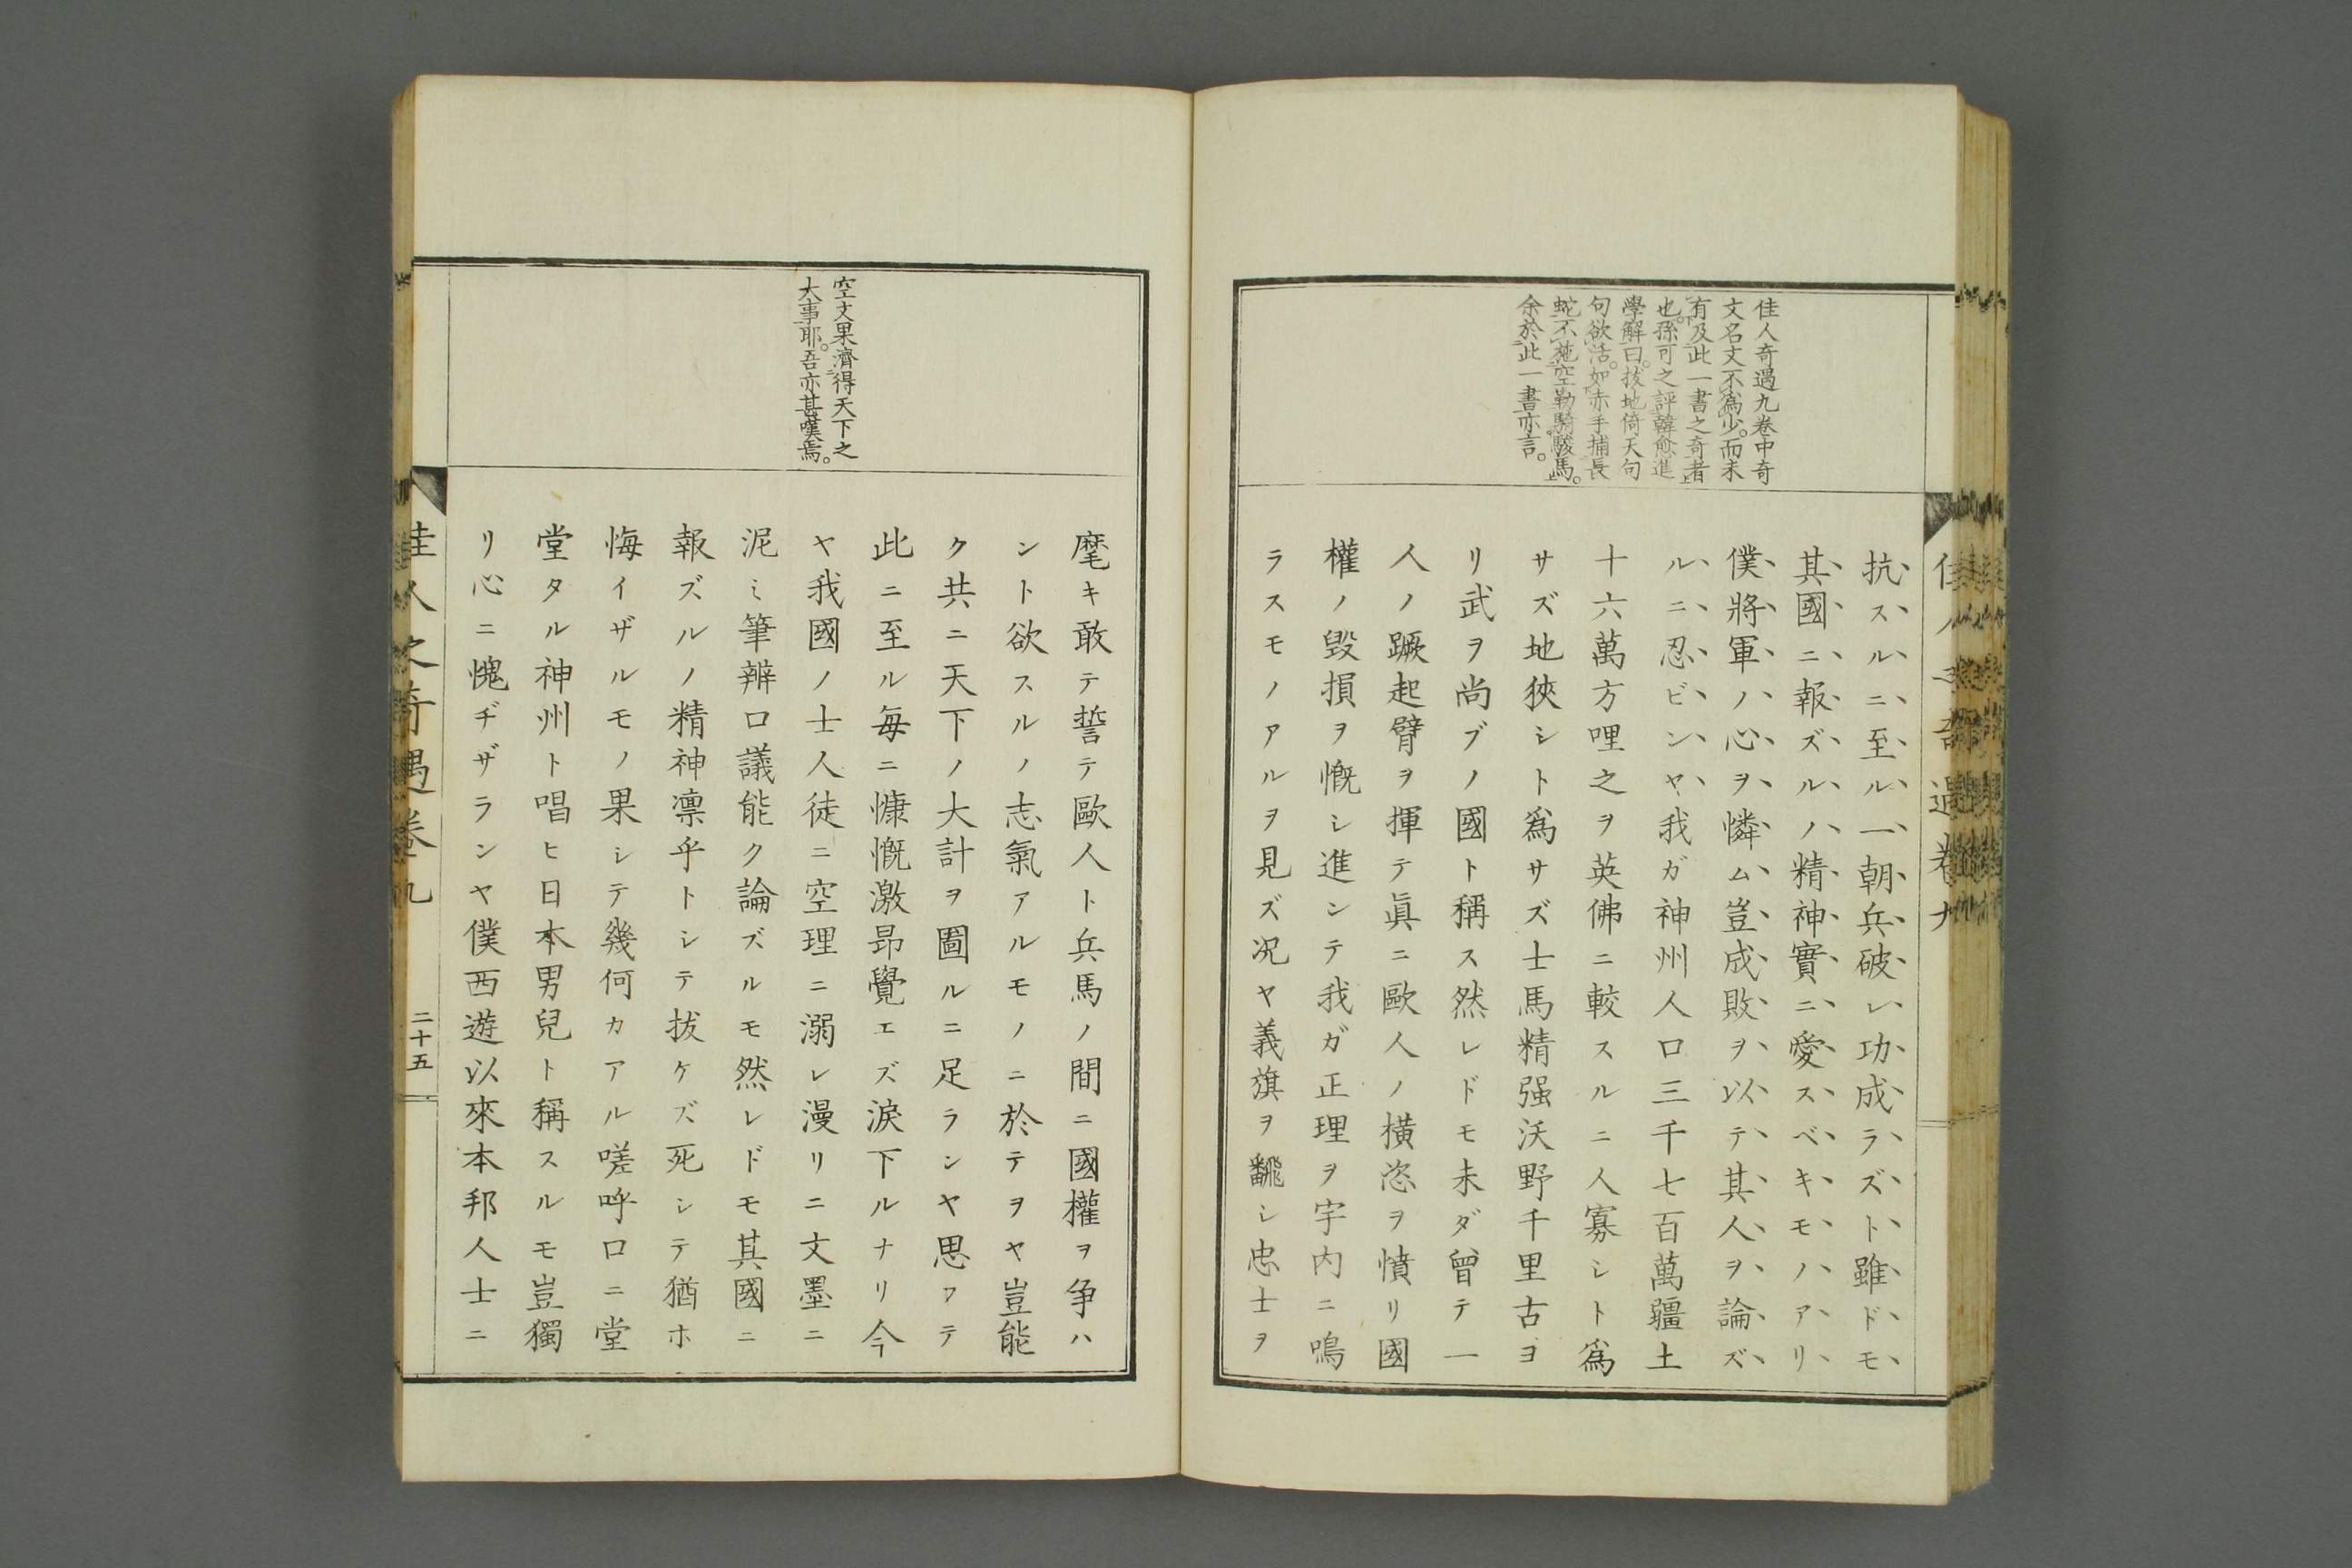 佳人奇遇九卷中奇
文名文不爲少。而未
有及此一書之奇者
也。孫可之評韓愈進
學解曰。拔地倚天句
句欲活。如赤手捕長
蛇不施空勒騎駿馬。
余於此一書亦言。
抗スルニ至ル一朝兵破レ功成ラズト雖ドモ
其國ニ報ズルノ精神實ニ愛スベキモノアリ
僕將軍ノ心ヲ憐ム豈成敗ヲ以テ其人ヲ論ズ
ルニ忍ビンヤ我ガ神州人口三千七百萬疆土
十六萬方哩之ヲ英佛ニ較スルニ人寡シト爲
サズ地狹シト爲サズ士馬精强沃野千里古ヨ
リ武ヲ尚ブノ國ト稱ス然レドモ未ダ曾テ一
人ノ蹶起臂ヲ揮テ眞ニ歐人ノ橫恣ヲ憤リ國
權ノ毀損ヲ慨シ進ンテ我ガ正理ヲ宇内ニ鳴
ラスモノアルヲ見ズ况ヤ義旗ヲ飜シ忠士ヲ
空文果濟得天下之
大事耶。吾亦甚嘆焉。
麾キ敢テ誓テ歐人ト兵馬ノ間ニ國權ヲ争ハ
ント欲スルノ志氣アルモノニ於テヲヤ豈能
ク共ニ天下ノ大計ヲ圖ルニ足ランヤ思フテ
此ニ至ル每ニ慷慨激昻覺エズ淚下ルナリ今
ヤ我國ノ士人徒ニ空理ニ溺レ漫リニ文墨ニ
泥ミ筆辨口議能ク論ズルモ然レドモ其國ニ
報ズルノ精神凛乎トシテ拔ケズ死シテ猶ホ
悔イザルモノ果シテ幾何カアル嗟呼口ニ堂
堂タル神州ト唱ヒ日本男兒ト稱スルモ豈獨
リ心ニ愧ヂザランヤ僕西遊以來本邦人士ニ
佳人之奇遇卷九
二十五